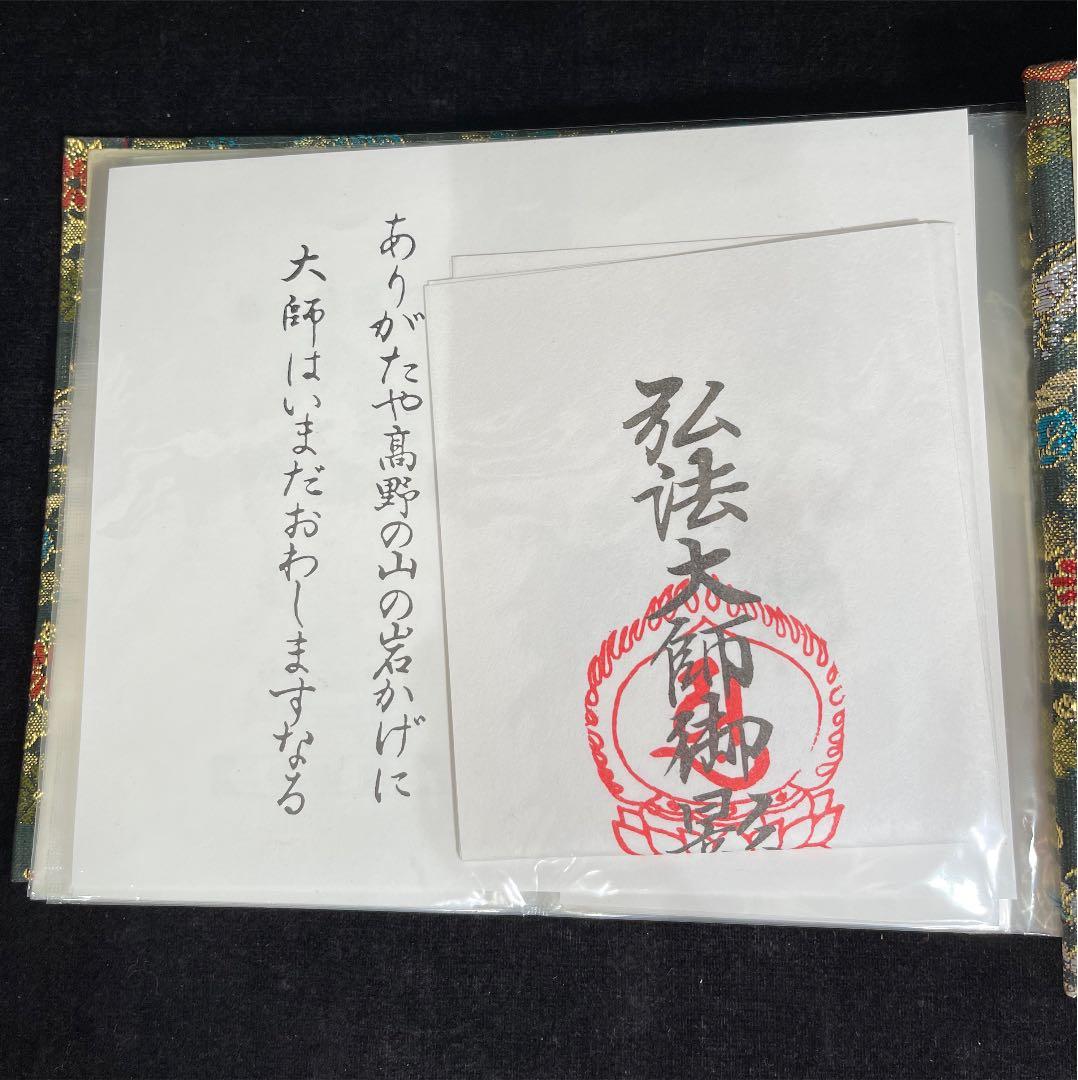 弘法大師御影
ありがたや高野の山の岩かげに
大師はいまだおわしますなる